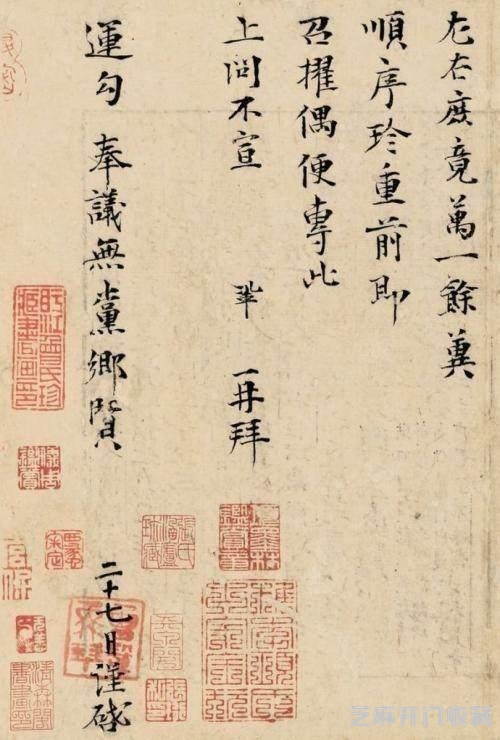 左右庶竟萬一餘冀
順序珍重前即
召擢偶便專此
上問不宣 鞏 再拜
運勾 奉議無黨鄉賢
二十七日謹啟
芝麻开门收藏